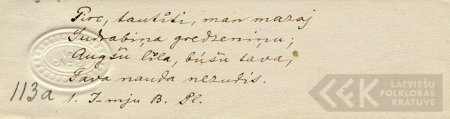 Pērc, tautīti, man mazaj
Sudrabiņa gredzeniņu;
Augšu liela, būšu tava,
Tava nauda nezudīs.
113a
1. I-mju B. Pl.
LATVIEŠU
FOLKLORAS
KRĀTUVE